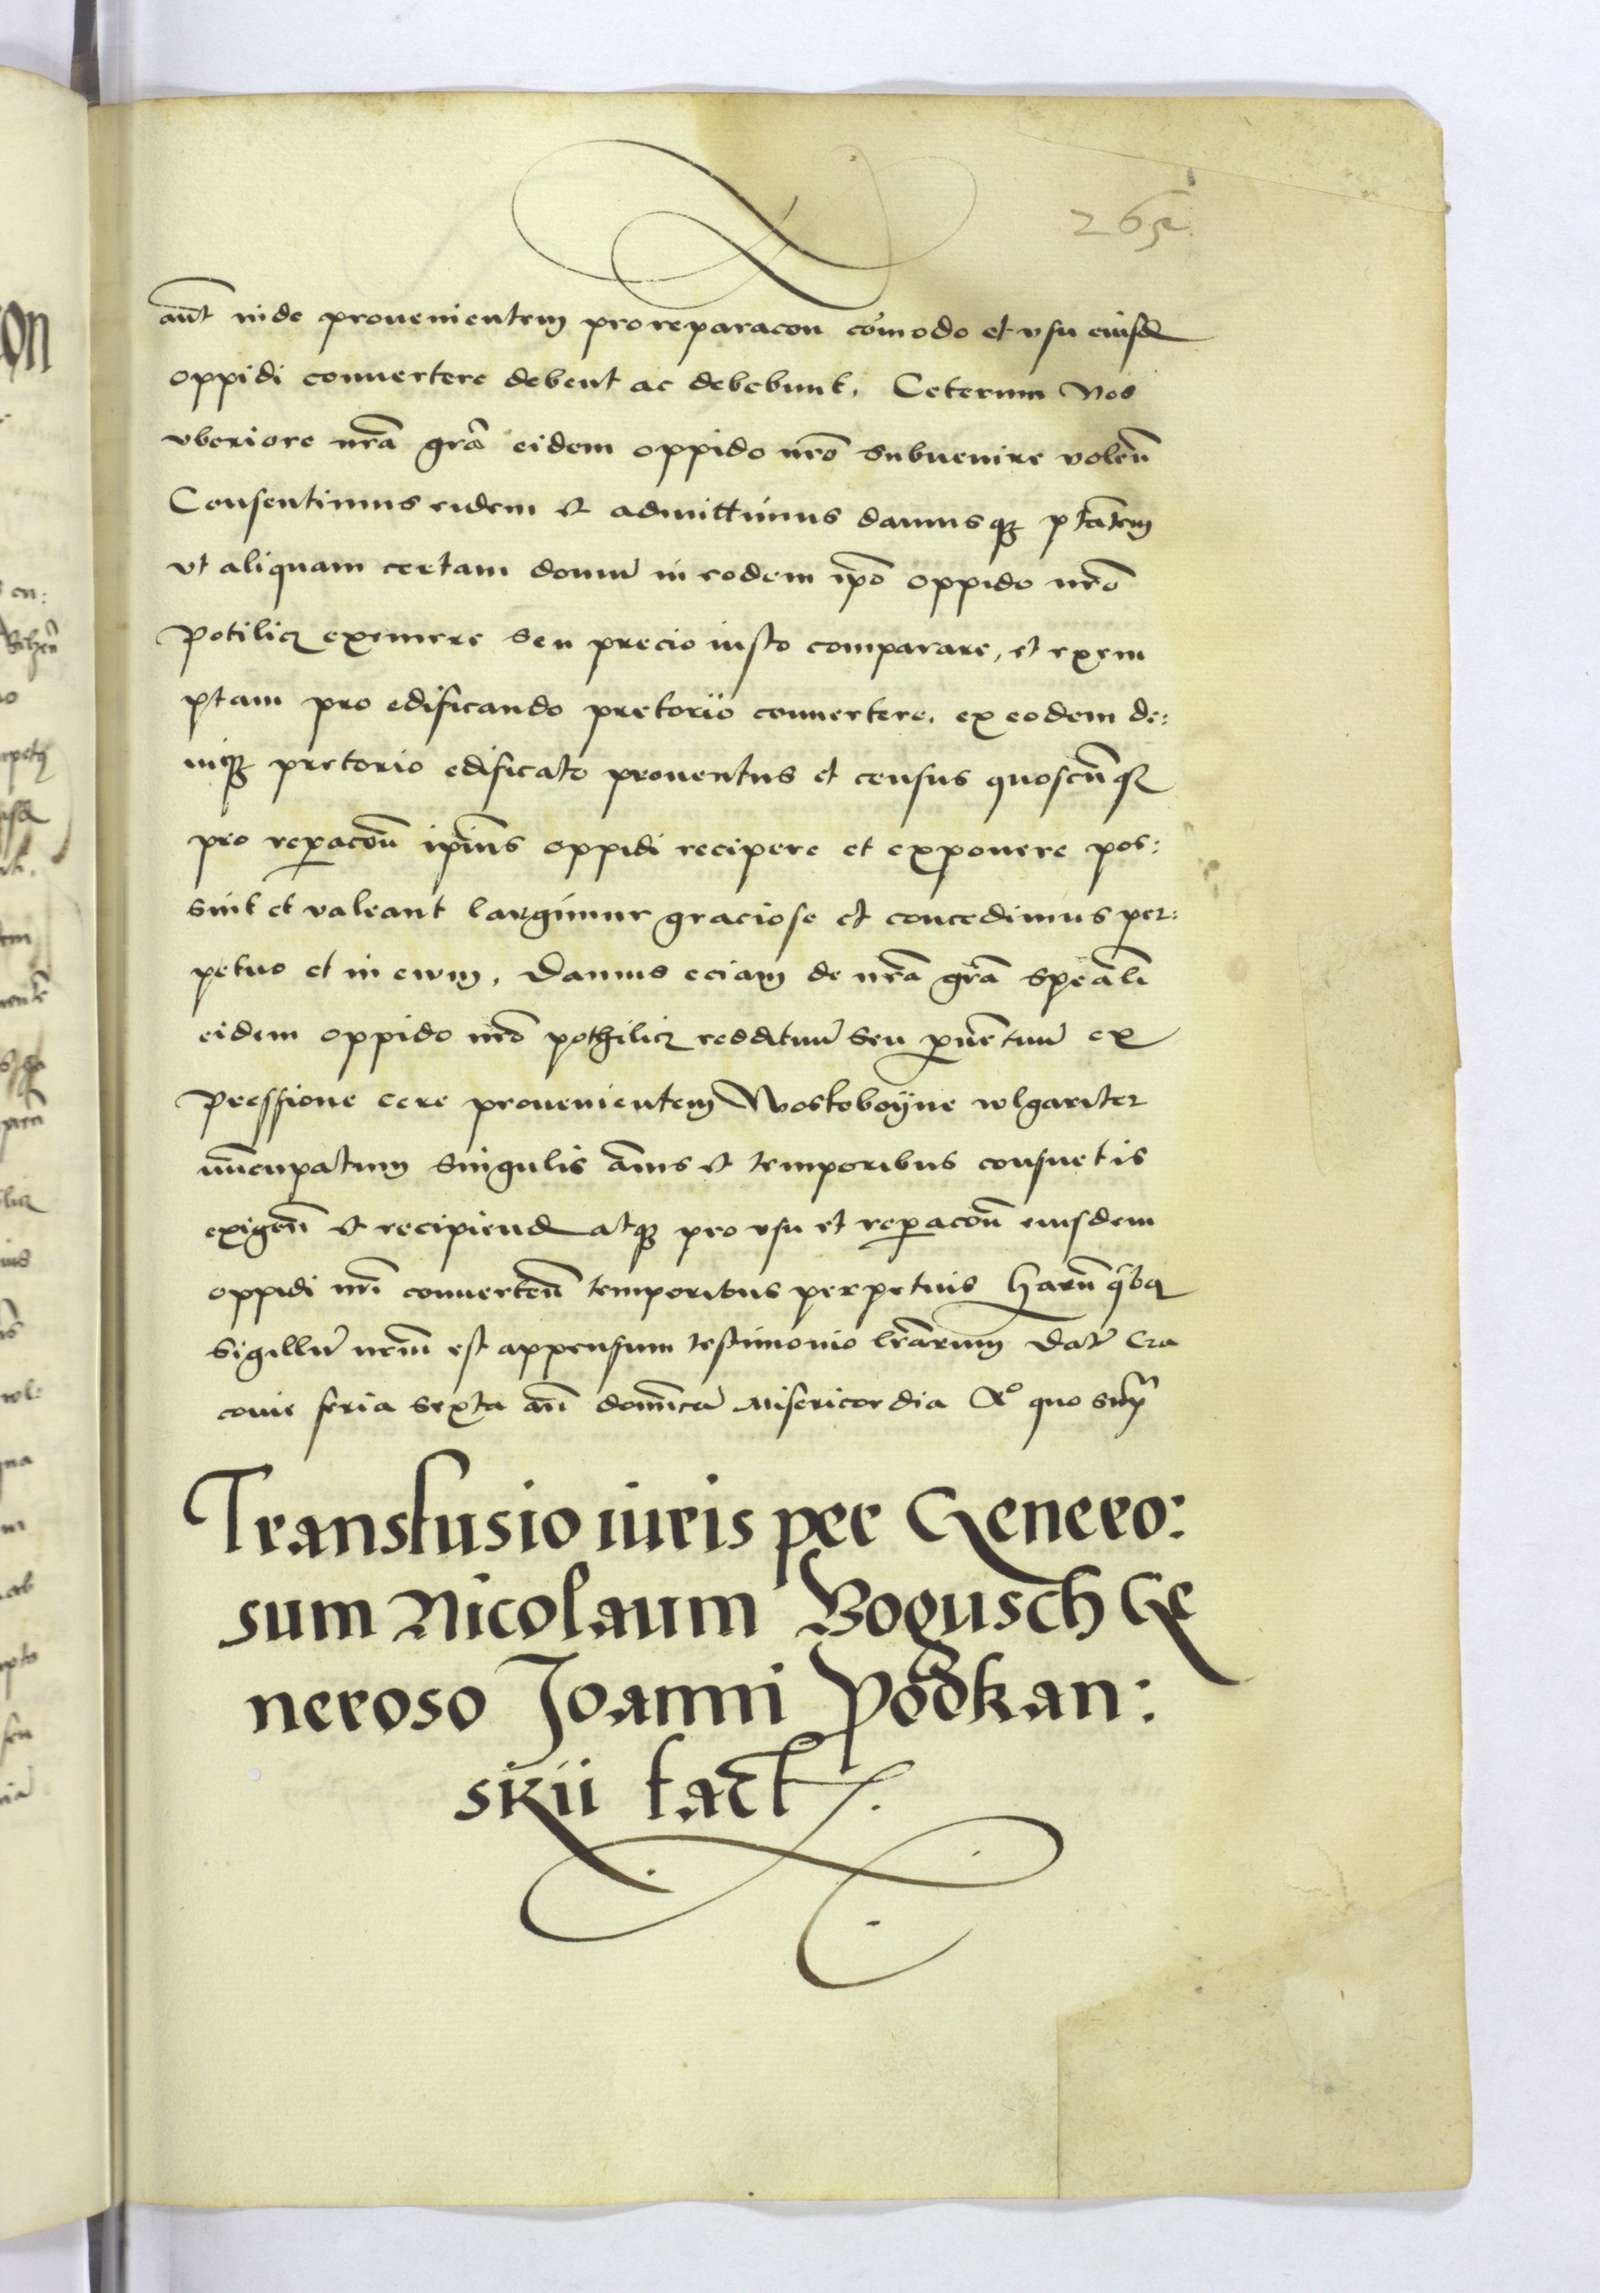 265
aūt inde prouenientem pro reparacon cōmodo et vsu eiusd
oppidi conuertere debent ac debebunt. Ceterum Nos
vberiore nrã grã eidem oppido nrõ subuenire volen̄
Consentimus eidem et admittimus damusqȝ ptãtem
vt aliquam certam domū in eodem ip̄o oppido nrõ
Potilicȝ exemere seu precio iusto comparare, et exem
ptam pro edificando pretorio conuertere. ex eodem de:
niqȝ pretorio edificato prouentus et census quoscūqȝ
pro reparacoñ ipius oppidi recipere et exponere pos:
sint et valeant largimur graciose et concedimus per:
petuo et in ewm. Damus eciam de nrã grã speãli
eidem oppido nrõ pothilicȝ redditum̄ seu puētum̄ ex
pressione cere prouenientem Woskoboyne wlgariter
nūcupatum singulis ãnis et temporibus consuetis
exigen̄ et recipiend atqȝ pro vsu et reparacoñ eiusdem
oppidi nrĩ conuerten̄ temporibus perpetuis Harū qˈbȝ
Sigillū nrūm est appensum testimonio lrãrum Datˉ Cra
couie feria sexta añ domīcā Misericordia Aº quo supˉ
Transfusio iuris per Genero:
sum Nicolaum Bogusch Ge
neroso Joanni Podkan:
skii fact.